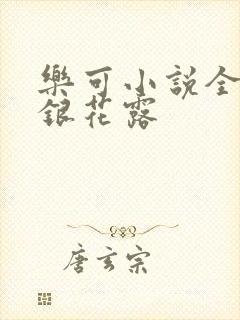 樂可小説全
銀花露
唐玄宗